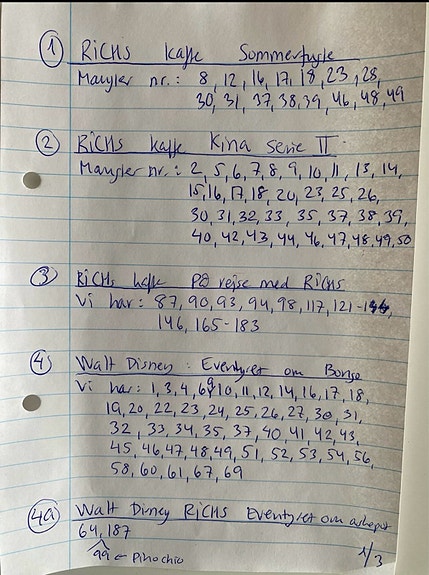 1 RiCHs kaffe Sommerfugle
Mangler nr.: 8, 12, 16, 17, 18, 23, 28,
30, 31, 37, 38, 39, 46, 48, 49
2 RiCHS kaffe Kina Serie II
Mangler nr.: 2, 5, 6, 7, 8, 9, 10, 11, 13, 14,
15, 16, 17, 18, 20, 23, 25, 26,
30, 31, 32, 33, 35, 37, 38, 39,
40, 42, 43, 44, 46, 47, 48, 49, 50
3 RiCHs kaffe På rejse med RiCHS
Vi har: 87, 90, 93, 94, 98, 117, 121-
146, 165-183
4 Walt Disney: Eventyret om Bongo
Vi har: 1, 3, 4, 6, 9, 10, 11, 12, 14, 16, 17, 18,
19, 20, 22, 23, 24, 25, 26, 27, 30, 31,
32, 33, 34, 35, 37, 40, 41, 42, 43,
45, 46, 47, 48, 49, 51, 52, 53, 54, 56,
58, 60, 61, 67, 69
4a Walt Disney RiCHS Eventyret om
64, 187
99 ← Pinochio
1/3